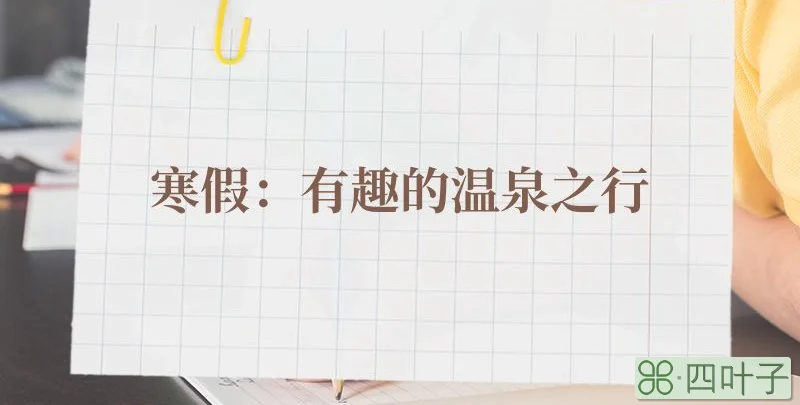 寒假：有趣的温泉之行
四叶子